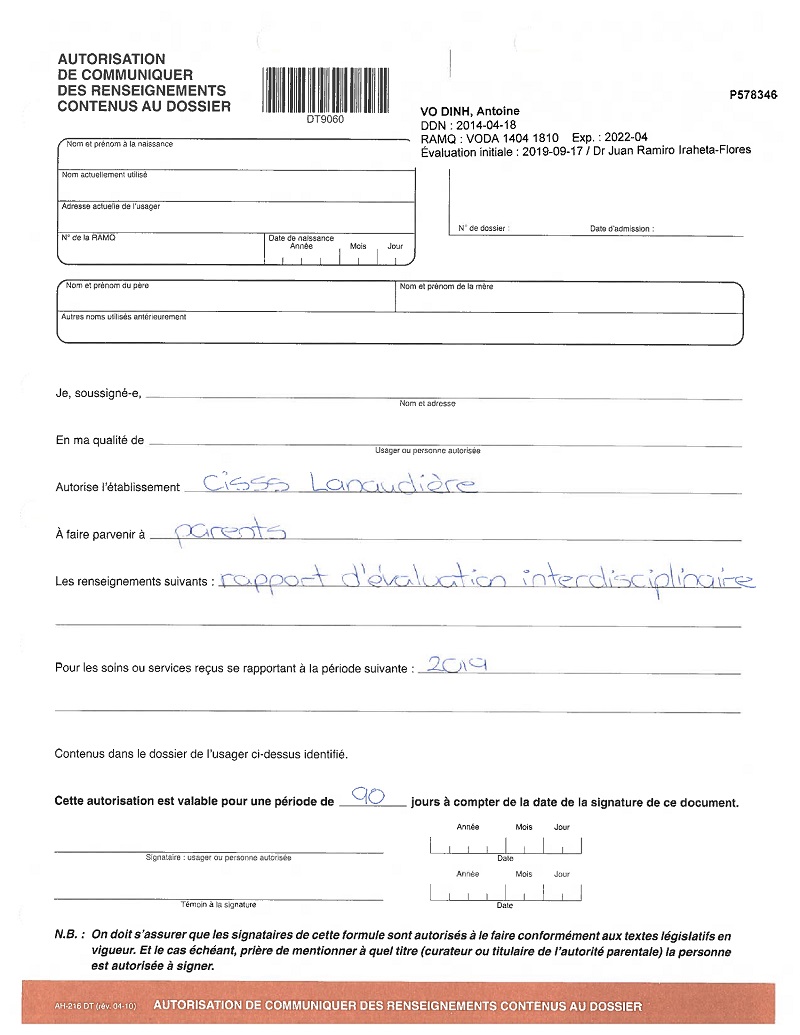 AUTORISATION
DE COMMUNIQUER
DES RENSEIGNEMENTS
CONTENUS AU DOSSIER
DT9060
P578346
VO DINH, Antoine
DDN : 2014-04-18
RAMQ : VODA 1404 1810 Exp. : 2022-04
Évaluation initiale : 2019-09-17 / Dr Juan Ramiro Iraheta-Flores
Nom et prénom à la naissance
Nom actuellement utilisé
Adresse actuelle de l'usager
N° de la RAMQ Date de naissance
Année Mois Jour
N° de dossier : Date d'admission :
Nom et prénom du père Nom et prénom de la mère
Autres noms utilisés antérieurement
Je, soussigné-e,
Nom et adresse
En ma qualité de
Usager ou personne autorisée
Autorise l'établissement CISSS Lanaudière
À faire parvenir à parents
Les renseignements suivants : rapport d'évaluation interdisciplinaire
Pour les soins ou services reçus se rapportant à la période suivante : 2019
Contenus dans le dossier de l'usager ci-dessus identifié.
Cette autorisation est valable pour une période de 90 jours à compter de la date de la signature de ce document.
Année Mois Jour
Signataire : usager ou personne autorisée Date
Année Mois Jour
Témoin à la signature Date
N.B. : On doit s'assurer que les signataires de cette formule sont autorisés à le faire conformément aux textes législatifs en
vigueur. Et le cas échéant, prière de mentionner à quel titre (curateur ou titulaire de l'autorité parentale) la personne
est autorisée à signer.
AH-216 DT (rév. 04-10) AUTORISATION DE COMMUNIQUER DES RENSEIGNEMENTS CONTENUS AU DOSSIER